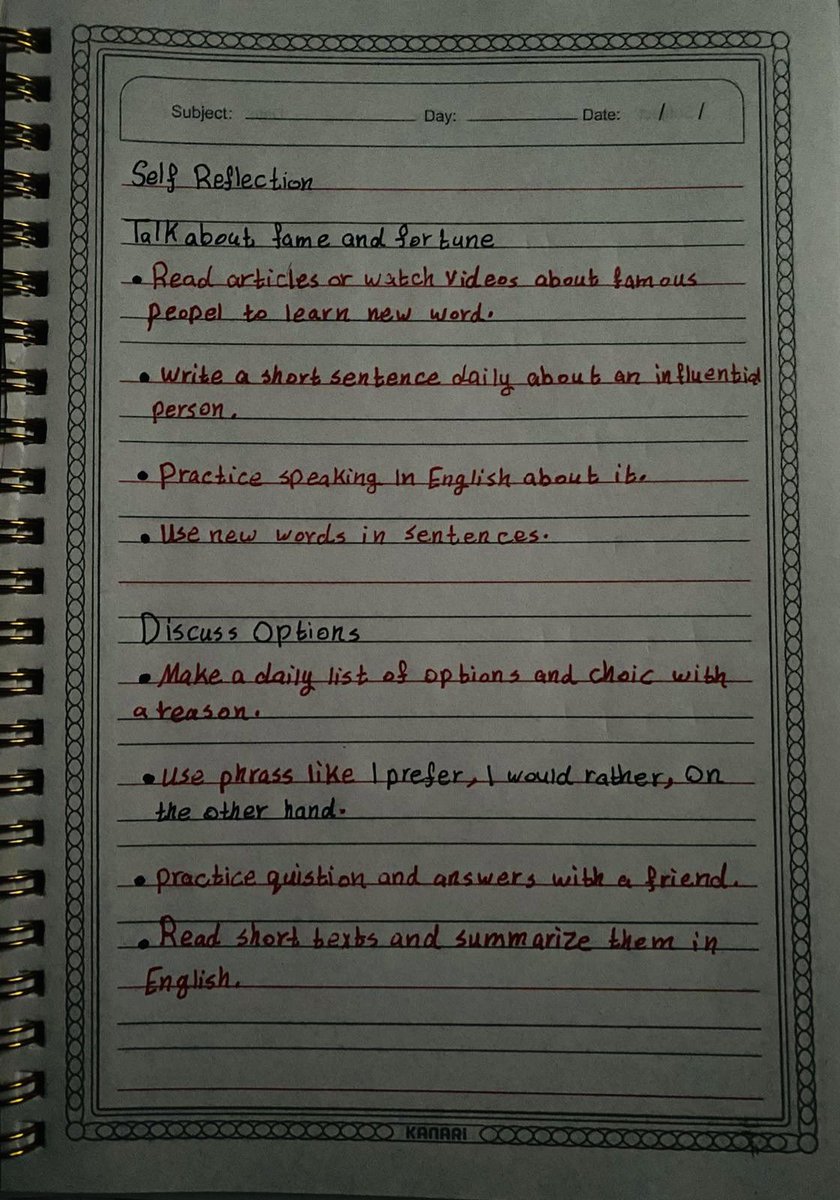 Subject: Day: Date: / /
Self Reflection
Talk about fame and fortune
• Read articles or watch videos about famous
peopel to learn new word.
• Write a short sentence daily about an influential
person.
• Practice speaking In English about it.
• Use new words in sentences.
Discuss Options
• Make a daily list of options and choic with
a reason.
• use phrass like I prefer, I would rather, On
the other hand.
• practice quistion and answers with a friend.
• Read short texts and summarize them in
English.
KANARI